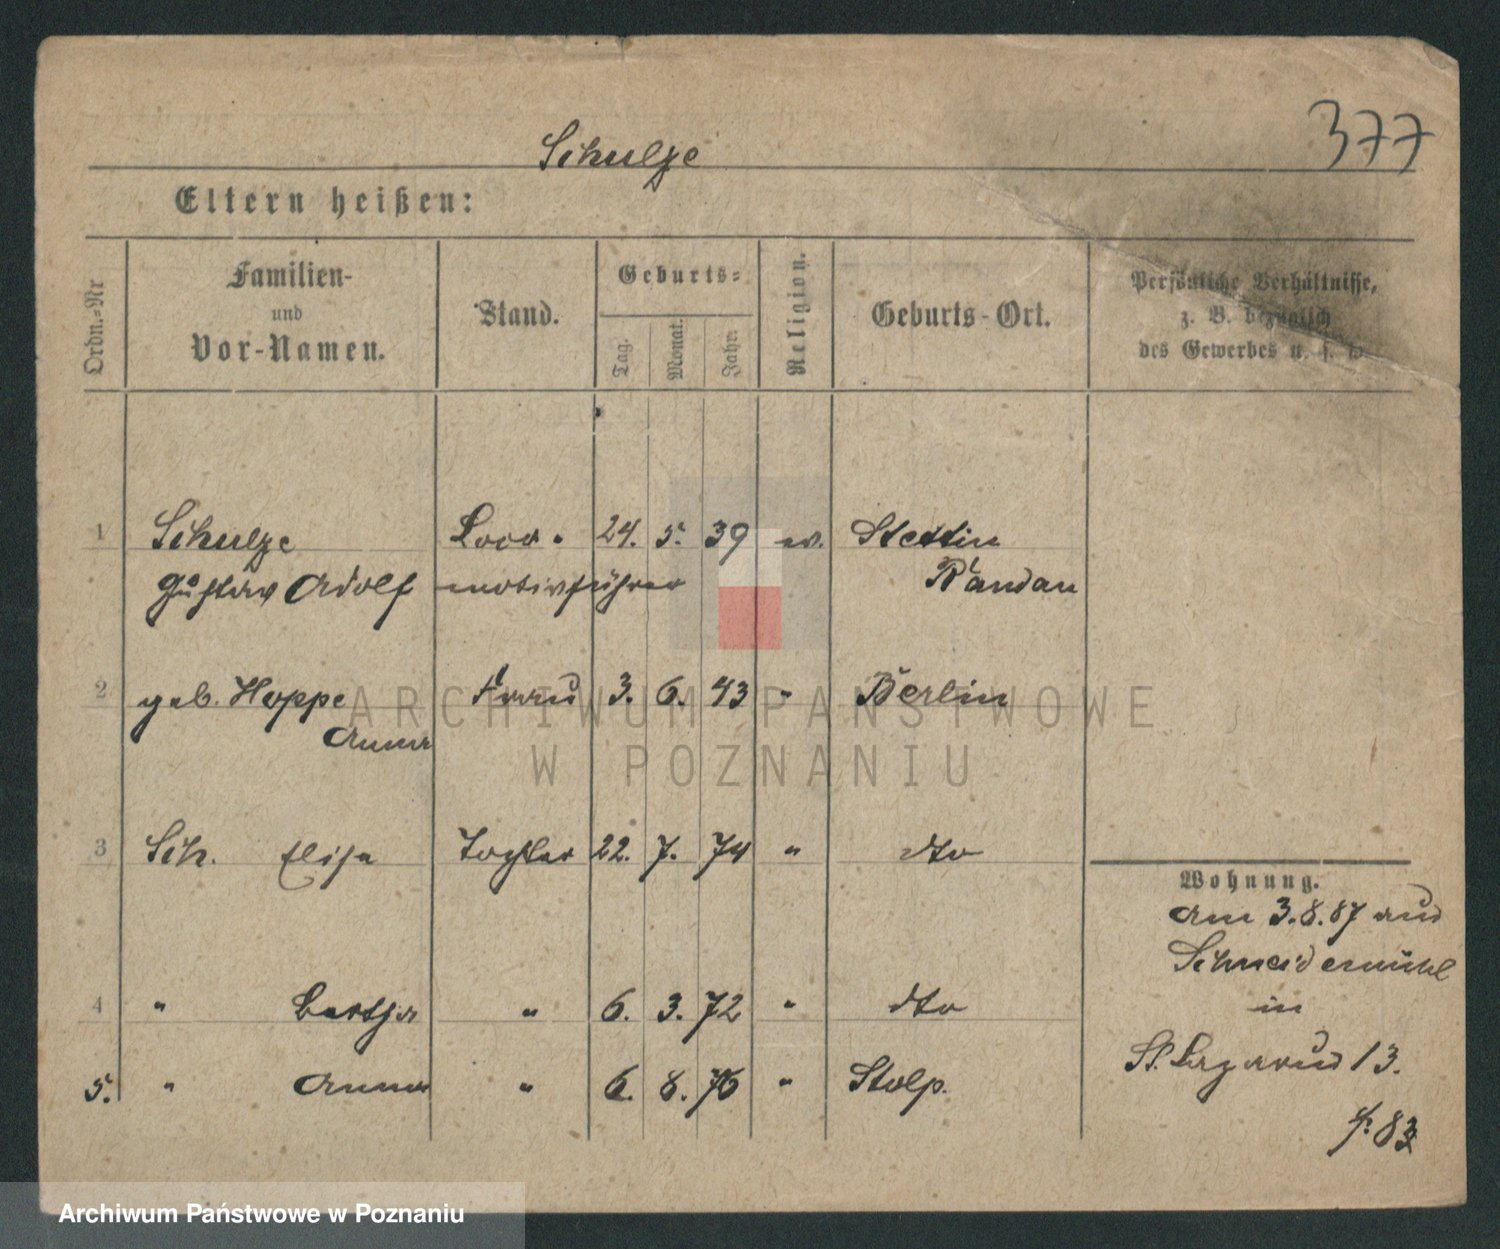 377
Schulze
Eltern heißen:
Ordn.-Nr
Familien-
und
Vor-Namen.
Stand.
Geburts-
Tag.
Monat.
Jahr.
Religion.
Geburts-Ort.
Persönliche Verhältnisse,
z. B. bezüglich
des Gewerbes u. s. w.
1 Schulze Loco- 24. 5. 39 ev. Stettin
Gustav Adolf motivführer Randau
2 geb. Hoppe Frau 3. 6. 43 " Berlin
Anna
3 Sch. Elise Tochter 22. 7. 74 " dto
Wohnung.
am 3.8.87 aus
Schneidemühl
4 " Bertha " 6. 3. 72 " dto
in
St. Lazarus 13.
5. " Anna " 6. 8. 76 " Stolp.
83
ARCHIWUM PAŃSTWOWE
W POZNANIU
Archiwum Państwowe w Poznaniu